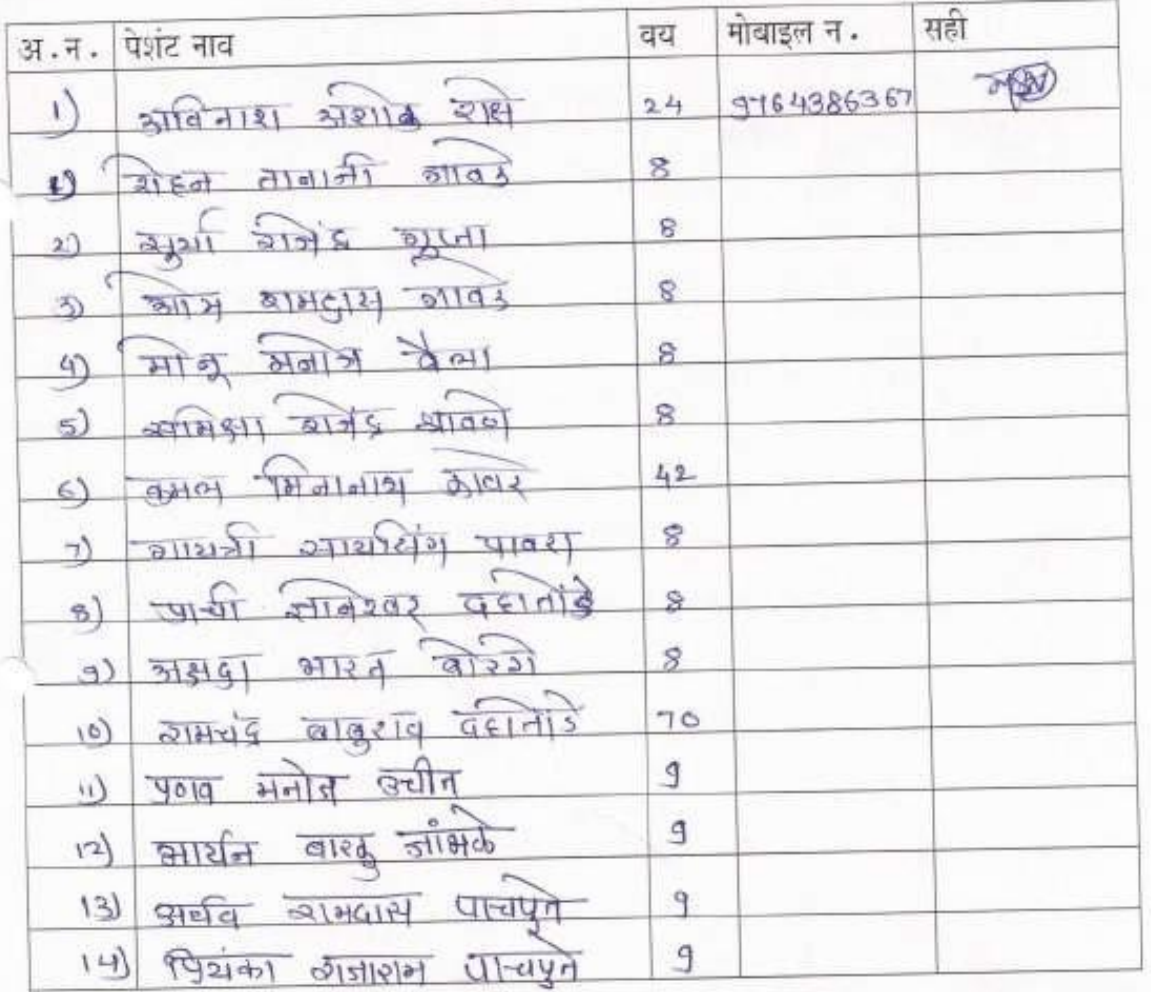 अ.न. पेशंट नाव वय मोबाइल न. सही
1) अविनाश अशोक राक्षे 24 9764386367
1) रोहन तानाजी गावडे 8
2) सुर्या राजेंद्र गुप्ता 8
3) ओम रामदास गावडे 8
4) मोनू मनोज वैला 8
5) समिक्षा राजेंद्र श्रावणे 8
6) कमल मिनानाथ कावरे 42
7) गायत्री सायसिंग पावरा 8
8) प्राची ज्ञानेश्वर दहातोंडे 8
9) अक्षदा भारत बोरगे 8
10) रामचंद्र बाबुराव दहातोंडे 70
11) प्रणव मनोज उचीत 9
12) आर्यन बारकु जांभळे 9
13) अर्थव रामदास पाचपुते 9
14) प्रियंका राजाराम पाचपुते 9